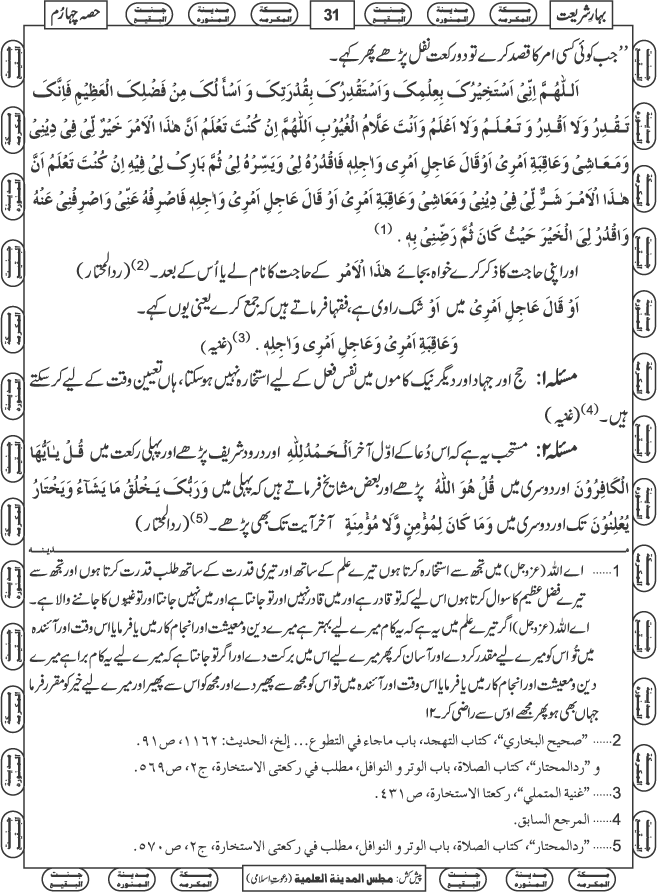 بہارِ شریعت
31
حصہ چہارم
’’جب کوئی کسی امر کا قصد کرے تو دو رکعت نفل پڑھے پھر کہے۔
اَللّٰھُمَّ اِنِّیْ اَسْتَخِیْرُکَ بِعِلْمِکَ وَاَسْتَقْدِرُکَ بِقُدْرَتِکَ وَ اَسْأَلُکَ مِنْ فَضْلِکَ الْعَظِیْمِ فَاِنَّکَ
تَقْدِرُ وَلَا اَقْدِرُ وَ تَعْلَمُ وَلَا اَعْلَمُ وَاَنْتَ عَلَّامُ الْغُیُوْبِ اَللّٰھُمَّ اِنْ کُنْتَ تَعْلَمُ اَنَّ ھٰذَا الْاَمْرَ خَیْرٌ لِّیْ فِیْ دِیْنِیْ
وَمَعَاشِیْ وَعَاقِبَۃِ اَمْرِیْ اَوْقَالَ عَاجِلِ اَمْرِیْ وَاٰجِلِہٖ فَاقْدُرْہُ لِیْ وَیَسِّرْہُ لِیْ ثُمَّ بَارِکْ لِیْ فِیْہِ اِنْ کُنْتَ تَعْلَمُ اَنَّ
ھٰذَا الْاَمْرَ شَرٌّ لِّیْ فِیْ دِیْنِیْ وَمَعَاشِیْ وَعَاقِبَۃِ اَمْرِیْ اَوْ قَالَ عَاجِلِ اَمْرِیْ وَاٰجِلِہٖ فَاصْرِفْہُ عَنِّیْ وَاصْرِفْنِیْ عَنْہُ
وَاقْدُرْ لِیَ الْخَیْرَ حَیْثُ کَانَ ثُمَّ رَضِّنِیْ بِہٖ . (1)
اور اپنی حاجت کا ذکر کرے خواہ بجائے ھٰذَا الْاَمْر کے حاجت کا نام لے یا اُس کے بعد۔ (2) (ردالمحتار)
اَوْ قَالَ عَاجِلِ اَمْرِیْ میں اَوْ شک راوی ہے، فقہا فرماتے ہیں کہ جمع کرے یعنی یوں کہے۔
وَعَاقِبَۃِ اَمْرِیْ وَعَاجِلِ اَمْرِیْ وَاٰجِلِہٖ . (3) (غنیہ)
مسئلہ ۱: حج اور جہاد اور دیگر نیک کاموں میں نفس فعل کے لیے استخارہ نہیں ہوسکتا، ہاں تعیین وقت کے لیے کرسکتے
ہیں۔ (4) (غنیہ)
مسئلہ ۲: مستحب یہ ہے کہ اس دُعا کے اوّل آخر اَلْحَمْدُلِلّٰہِ اور درود شریف پڑھے اور پہلی رکعت میں قُلْ یٰاَیُّھَا
الْکَافِرُوْنَ اور دوسری میں قُلْ ھُوَ اللّٰہُ پڑھے اور بعض مشایخ فرماتے ہیں کہ پہلی میں وَرَبُّکَ یَخْلُقُ مَا یَشَآءُ وَیَخْتَارُ
یُعْلِنُوْنَ تک اور دوسری میں وَمَا کَانَ لِمُؤْمِنٍ وَّلَا مُؤْمِنَۃٍ آخر آیت تک بھی پڑھے۔ (5) (ردالمحتار)
مدینہ
1 ...... اے اللہ (عزوجل) میں تجھ سے استخارہ کرتا ہوں تیرے علم کے ساتھ اور تیری قدرت کے ساتھ طلب قدرت کرتا ہوں اور تجھ سے
تیرے فضل عظیم کا سوال کرتا ہوں اس لیے کہ تو قادر ہے اور میں قادر نہیں اور تو جانتا ہے اور میں نہیں جانتا اور تو غیبوں کا جاننے والا ہے۔
اے اللہ (عزوجل) اگر تیرے علم میں یہ ہے کہ یہ کام میرے لیے بہتر ہے میرے دین و معیشت اور انجام کار میں یا فرمایا اس وقت اور آئندہ
میں تُو اس کو میرے لیے مقدر کر دے اور آسان کر پھر میرے لیے اس میں برکت دے اور اگر تو جانتا ہے کہ میرے لیے یہ کام برا ہے میرے
دین و معیشت اور انجام کار میں یا فرمایا اس وقت اور آئندہ میں تو اس کو مجھ سے پھیر دے اور مجھ کو اس سے پھیر اور میرے لیے خیر کو مقرر فرما
جہاں بھی ہو پھر مجھے اوس سے راضی کر۔۱۲
2 ...... ”صحیح البخاري“، کتاب التھجد، باب ماجاء في التطوع... إلخ، الحدیث: ۱۱۶۲، ص۹۱.
و ”ردالمحتار“، کتاب الصلاة، باب الوتر و النوافل، مطلب في رکعتی الاستخارة، ج۲، ص۵۶۹.
3 ...... ”غنیة المتملي“، رکعتا الاستخارة، ص۴۳۱.
4 ...... المرجع السابق.
5 ...... ”ردالمحتار“، کتاب الصلاة، باب الوتر و النوافل، مطلب في رکعتی الاستخارة، ج۲، ص۵۷۰.
پیش کش: مجلس المدینة العلمیة (دعوتِ اسلامی)